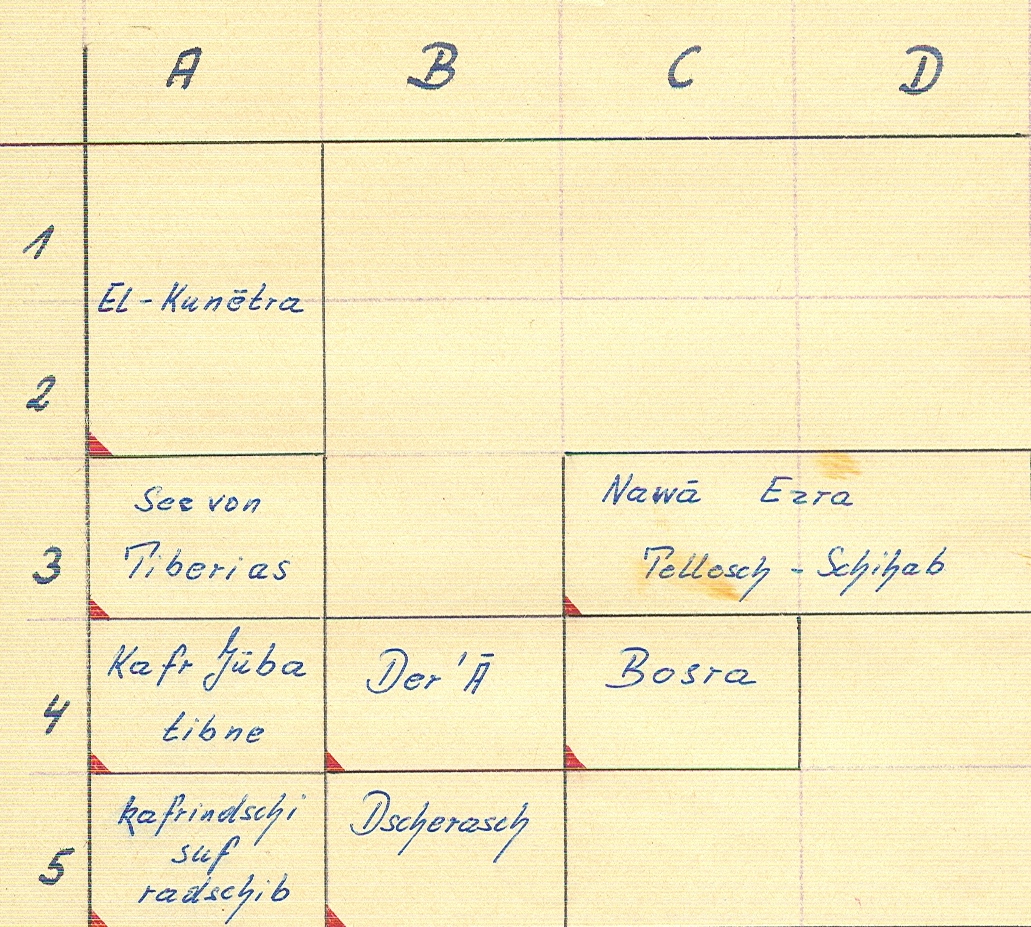 A B C D
1
El-Kunētra
2
See von
Nawā Ezra
3
Tiberias
Tellosch - Schihab
Kafr Jūba
Der'Ā
Bosra
4
tibne
kafrindschi
Dscherasch
5
suf
radschib